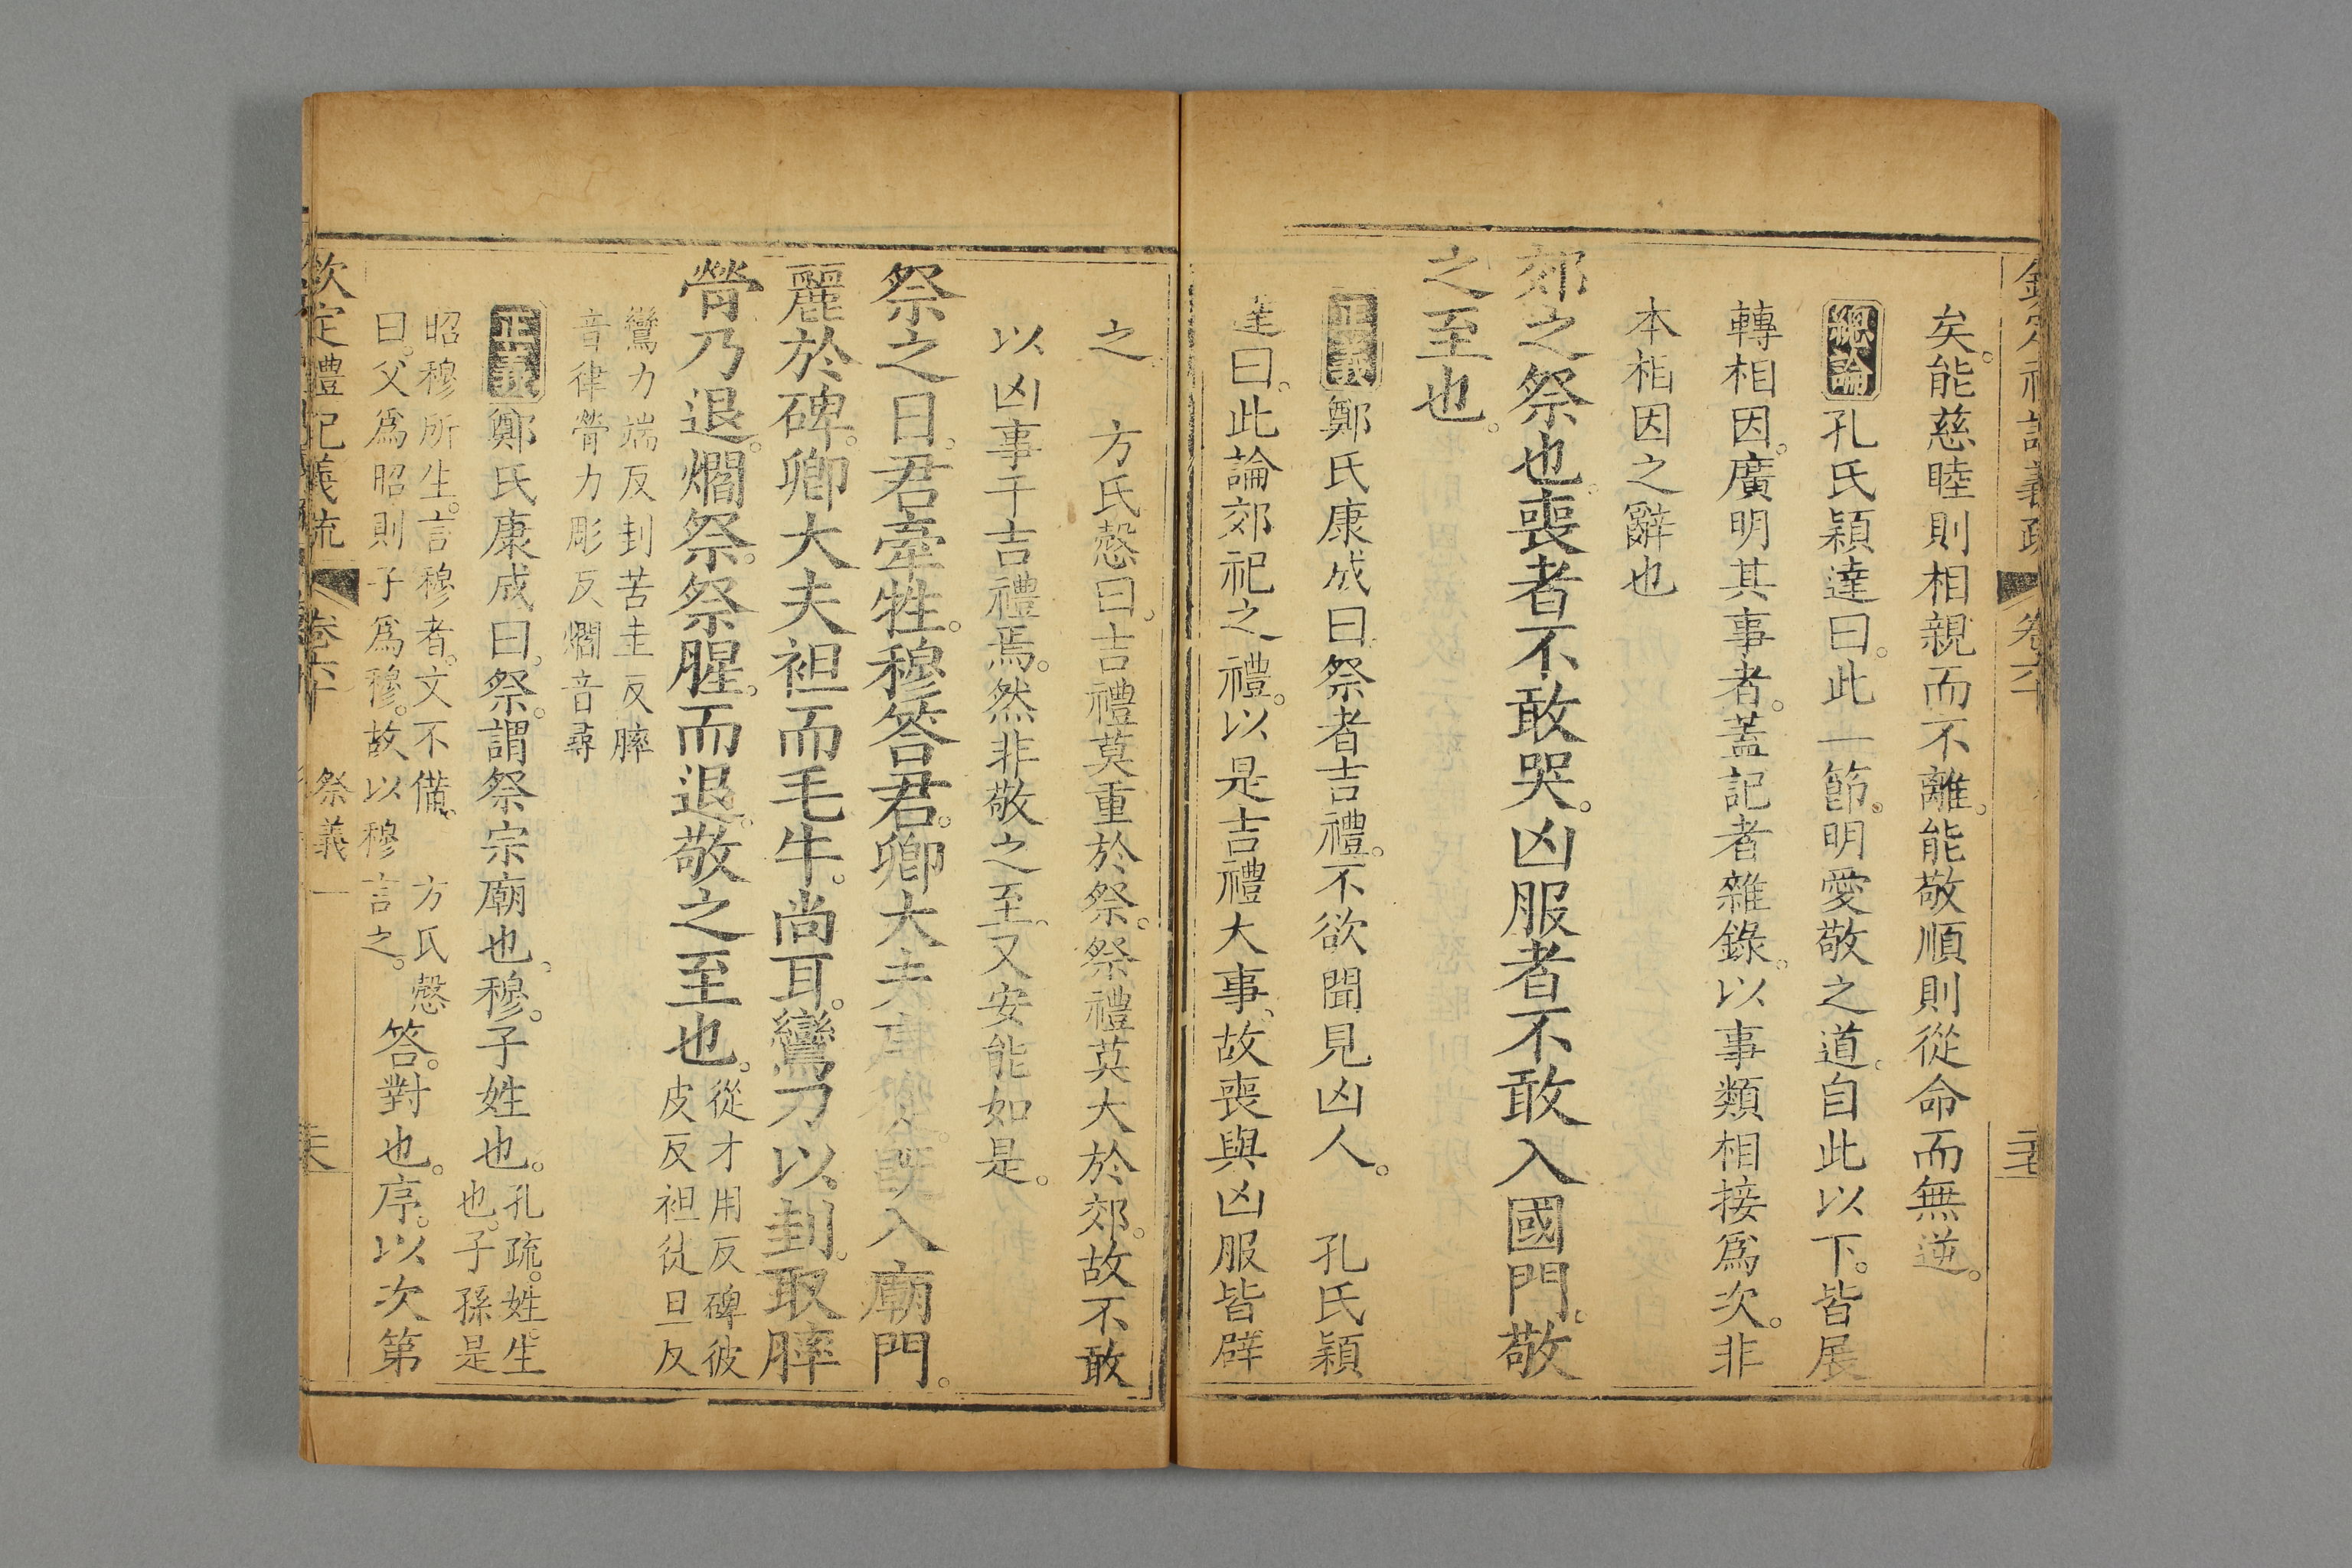 矣。能慈睦則相親而不離。能敬順則從命而無逆。
總論孔氏穎達曰。此一節。明愛敬之道。自此以下。皆展
轉相因。廣明其事者。蓋記者雜錄。以事類相接爲次。非
本相因之辭也
郊之祭也。喪者不敢哭。凶服者不敢入國門。敬
之至也。
正義鄭氏康成曰。祭者吉禮。不欲聞見凶人。 孔氏穎
達曰。此論郊祀之禮。以是吉禮大事。故喪與凶服皆辟
之。 方氏慤曰。吉禮莫重於祭。祭禮莫大於郊。故不敢
以凶事干吉禮焉。然非敬之至。又安能如是。
祭之日。君牽牲。穆答君。卿大夫序從。既入廟門。
麗於碑。卿大夫袒而毛牛。尚耳。鸞刀以刲。取膟
膋乃退。爓祭。祭腥。而退。敬之至也。從才用反碑彼
皮反袒徒旦反
鸞力端反刲苦圭反膟
音律膋力彫反爓音尋
正義鄭氏康成曰。祭。謂祭宗廟也。穆。子姓也。孔疏。姓。生
也。子孫是
昭穆所生。言穆者。文不備。 方氏慤
曰。父爲昭則子爲穆。故以穆言之。
答。對也。序。以次第
欽定禮記義疏 卷六十 祭義一